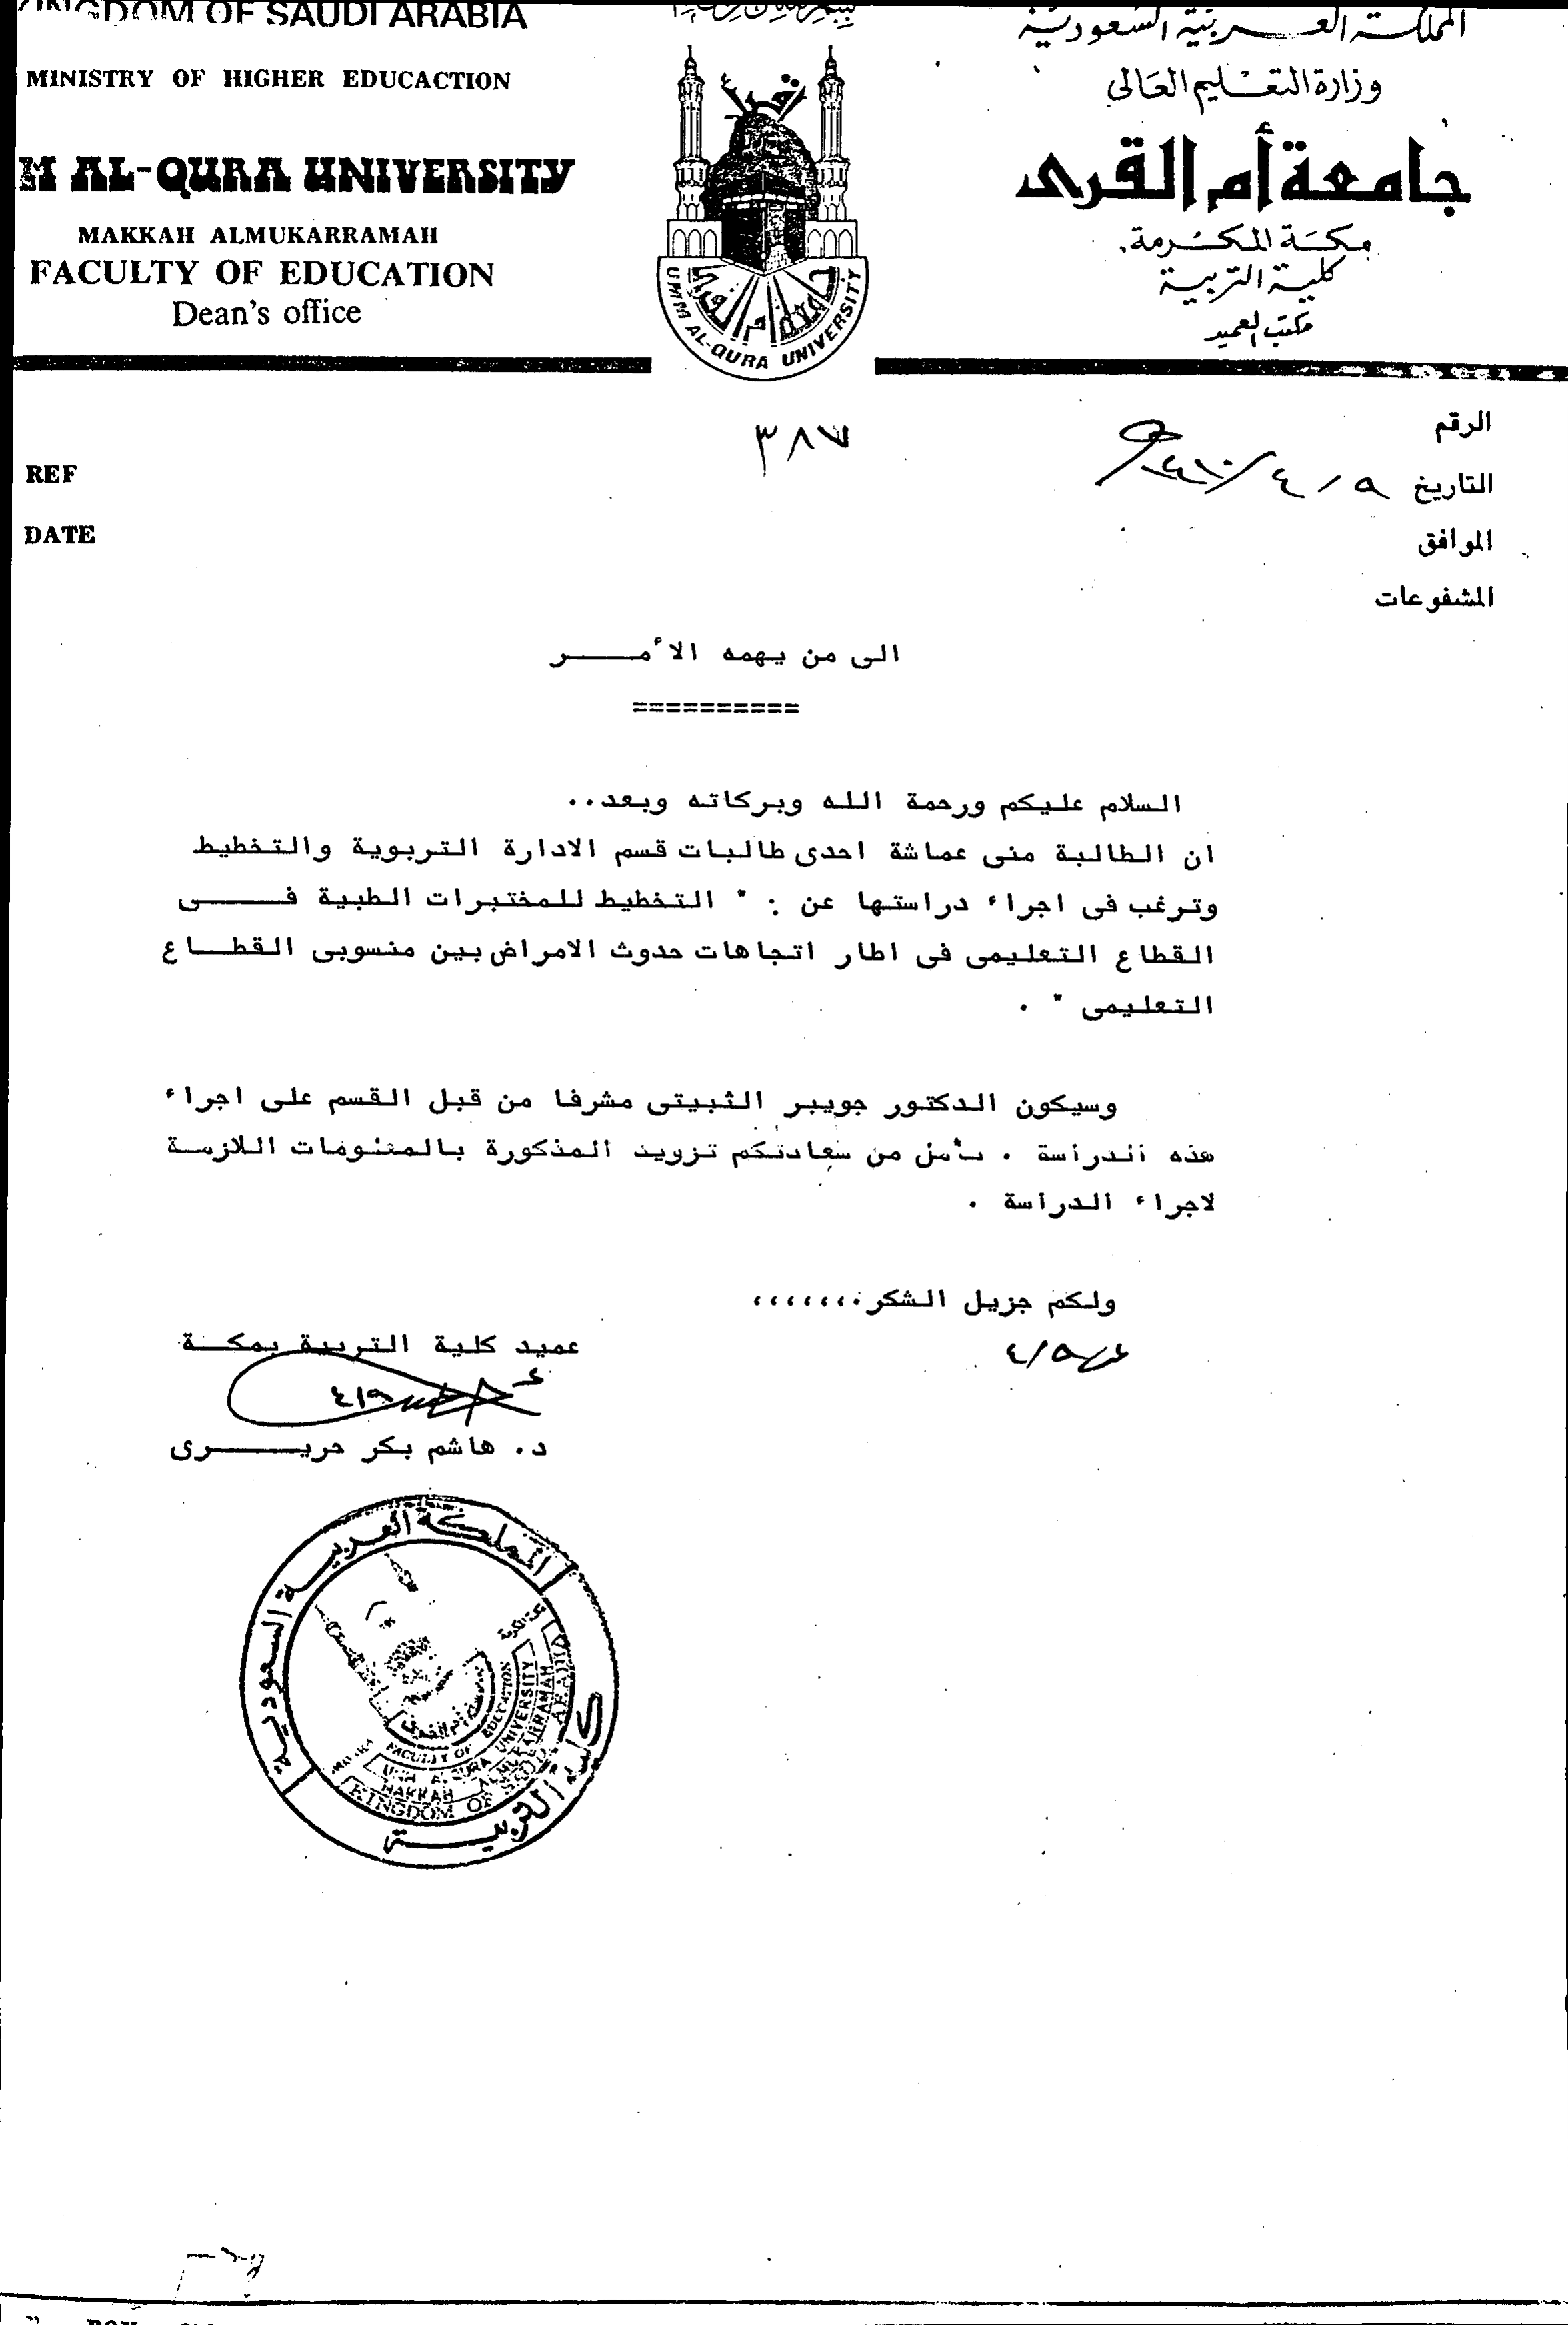 KINGDOM OF SAUDI ARABIA
MINISTRY OF HIGHER EDUCACTION
M AL-QURA UNIVERSITY
MAKKAH ALMUKARRAMAH
FACULTY OF EDUCATION
Dean's office
UMM AL-QURA UNIVERSITY
المملكة العربية السعودية
وزارة التعليم العالى
جامعة أم القرى
مكة المكرمة.
كلية التربية
مكتب العميد
الرقم
٣٨٧
التاريخ ٥ / ٤ / ١٤١٠
الموافق
المشفوعات
REF
DATE
الى من يهمه الأمـــــر
==========
السلام عليكم ورحمة الله وبركاته وبعد..
ان الطالبة منى عماشة احدى طالبات قسم الادارة التربوية والتخطيط
وترغب فى اجراء دراستها عن : " التخطيط للمختبرات الطبية فـــــى
القطاع التعليمى فى اطار اتجاهات حدوث الامراض بين منسوبى القطـــاع
التعليمى " .
وسيكون الدكتور جويبر الثبيتى مشرفا من قبل القسم على اجراء
هذه الدراسة . نأمل من سعادتكم تزويد المذكورة بالمعلومات اللازمــة
لاجراء الدراسة .
ولكم جزيل الشكر،،،،،،،
٤/٥
عميد كلية التربية بمكــــة
د. هاشم بكر حريــــــــرى
المملكة العربيــة السعوديــة
كلية التربيــة
جامعة أم القرى
FACULTY OF EDUCATION
UMM ALQURA UNIVERSITY
MAKKAH ALMUKARRAMAH
KINGDOM OF SAUDI ARABIA